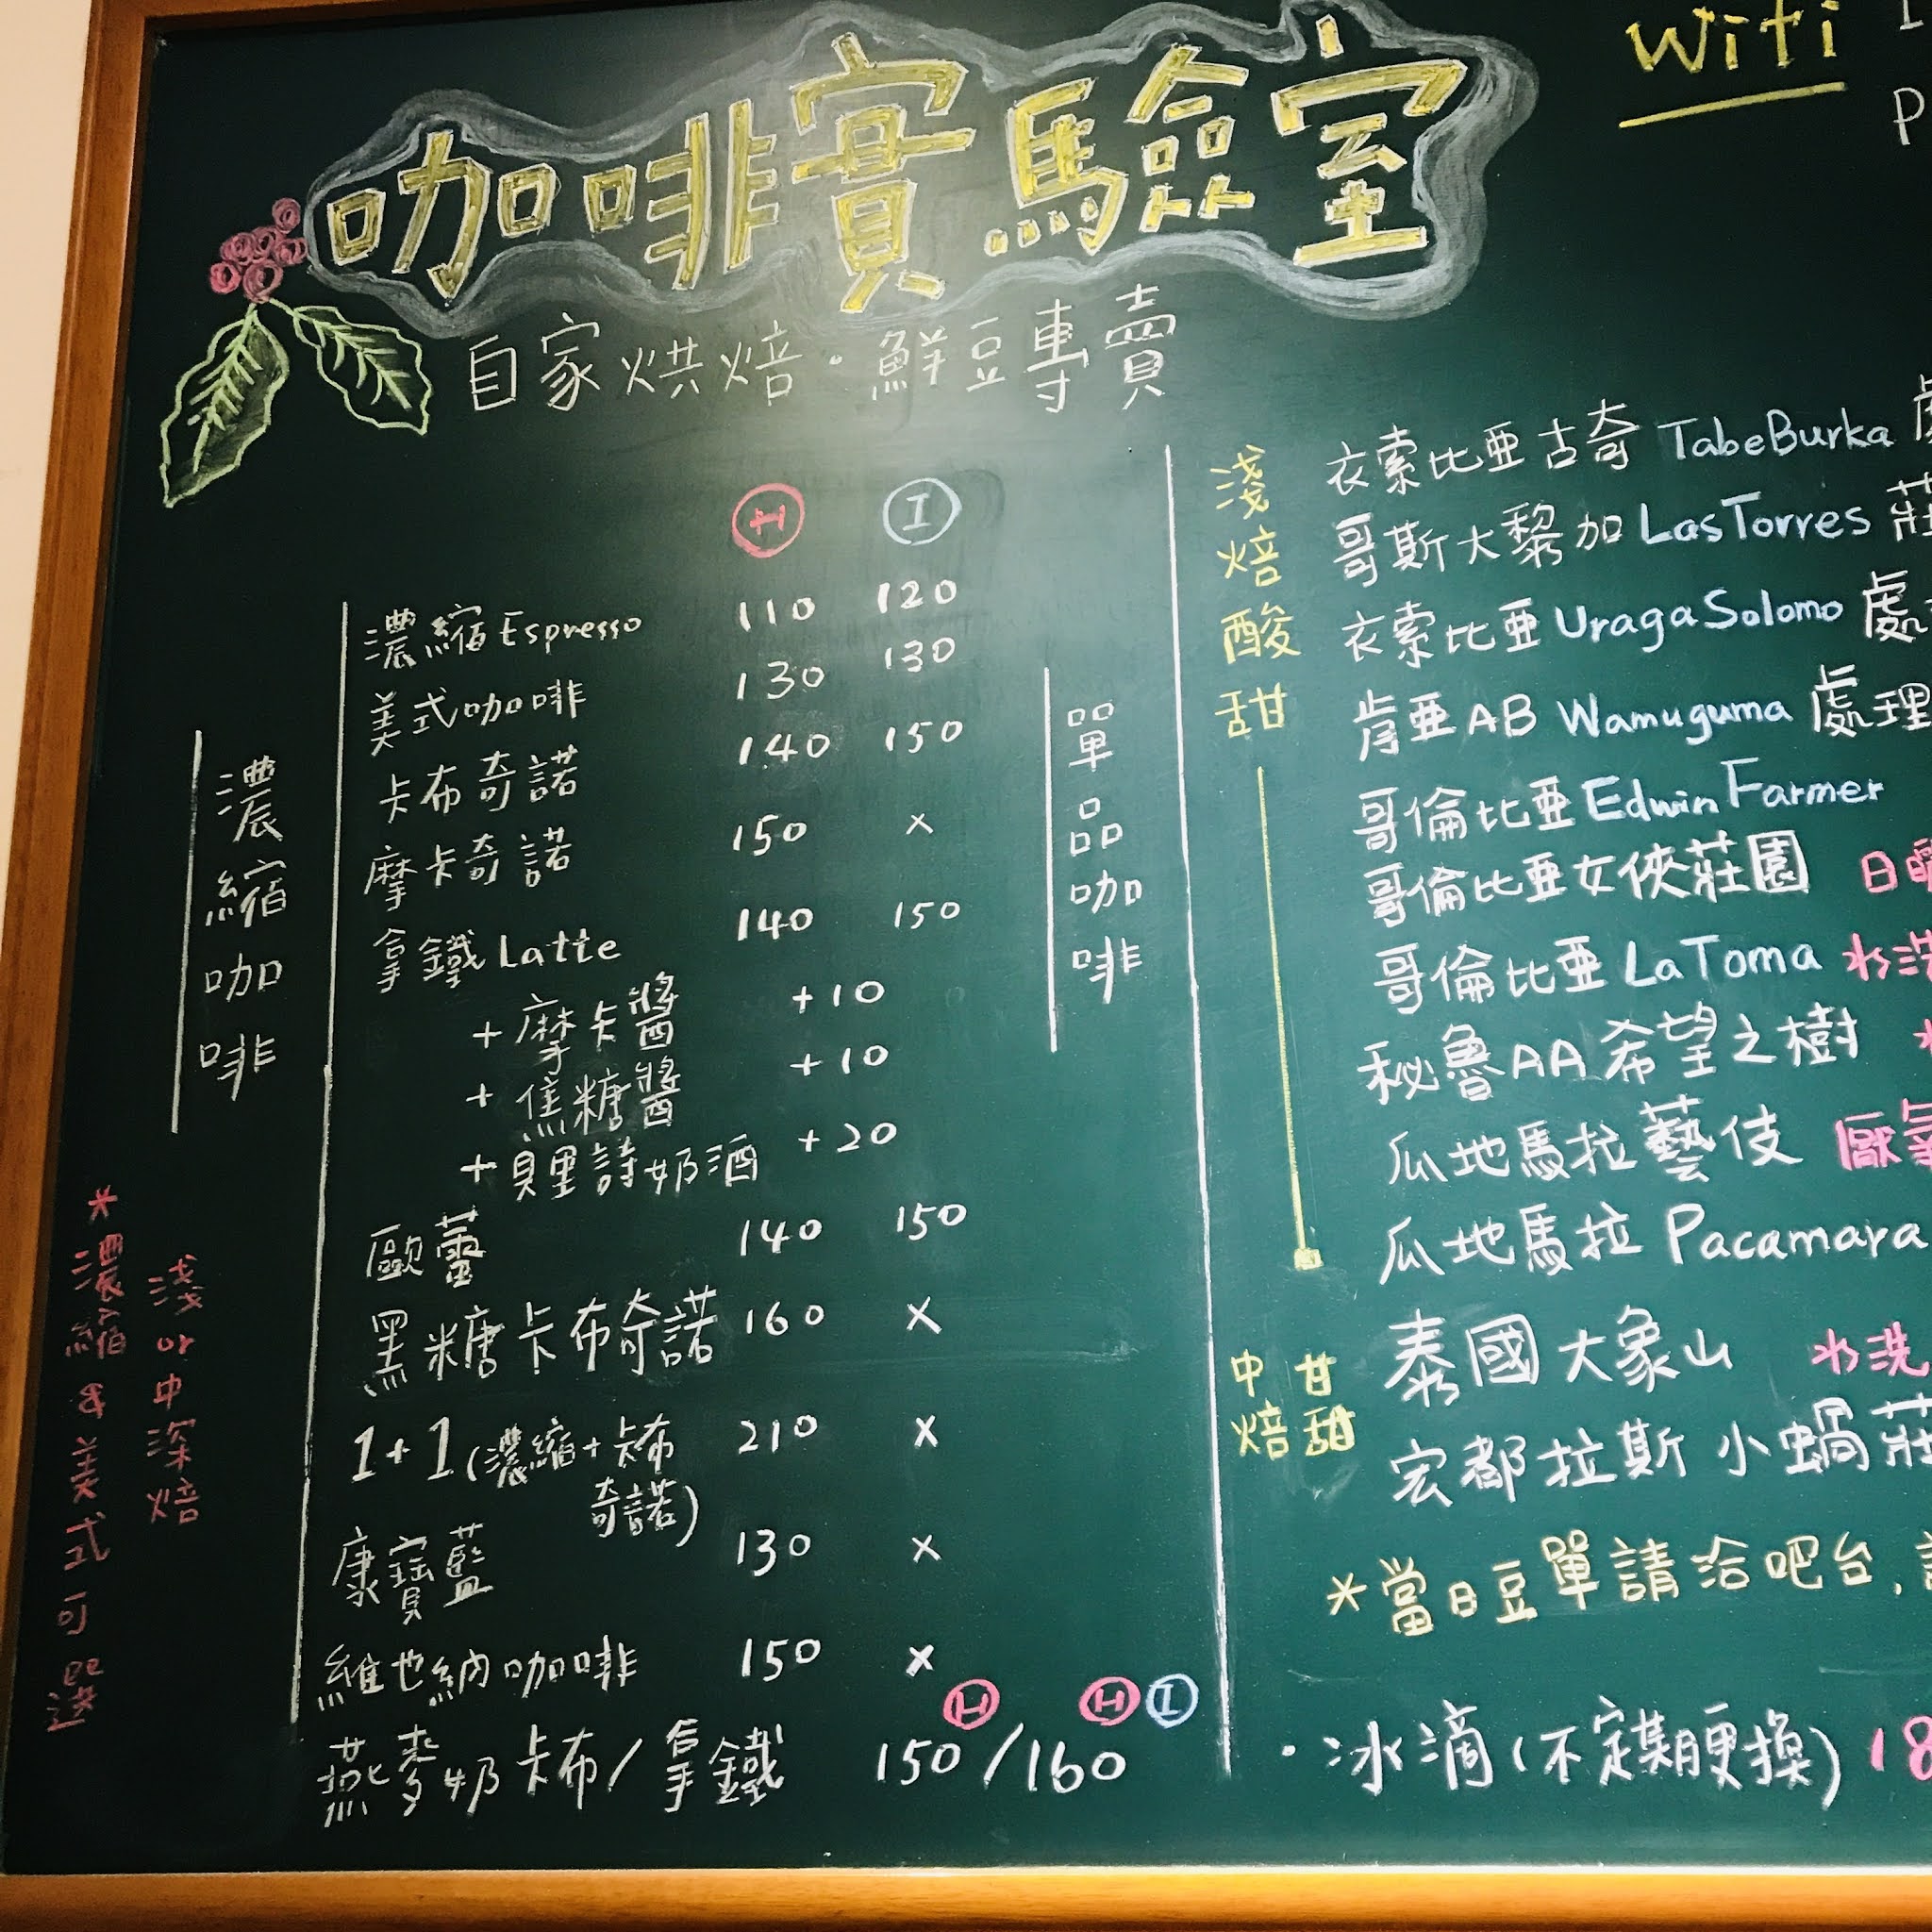 咖啡實驗室
自家烘焙·鮮豆專賣
Wifi
H I
濃縮咖啡
濃縮 Espresso 110 120
美式咖啡 130 130
卡布奇諾 140 150
摩卡奇諾 150 x
拿鐵 Latte 140 150
+ 摩卡醬 +10
+ 焦糖醬 +10
+ 貝里詩奶酒 +20
歐蕾 140 150
黑糖卡布奇諾 160 x
1+1 (濃縮+卡布 210 x
奇諾)
康寶藍 130 x
維也納咖啡 150 x
H H I
燕麥奶卡布/拿鐵 150/160
*濃縮&美式可選
淺or中深焙
單品咖啡
淺焙酸甜
衣索比亞古奇 TabeBurka 處
哥斯大黎加 LasTorres 莊
衣索比亞 UragaSolomo 處
肯亞AB Wamuguma 處理
哥倫比亞 Edwin Farmer
哥倫比亞女俠莊園 日曬
哥倫比亞 LaToma 水洗
秘魯AA希望之樹
瓜地馬拉藝伎 厭氧
瓜地馬拉 Pacamara
中焙甘甜
泰國大象山 水洗
宏都拉斯 小蝸莊
*當日豆單請洽吧台,
·冰滴(不定期更換) 18